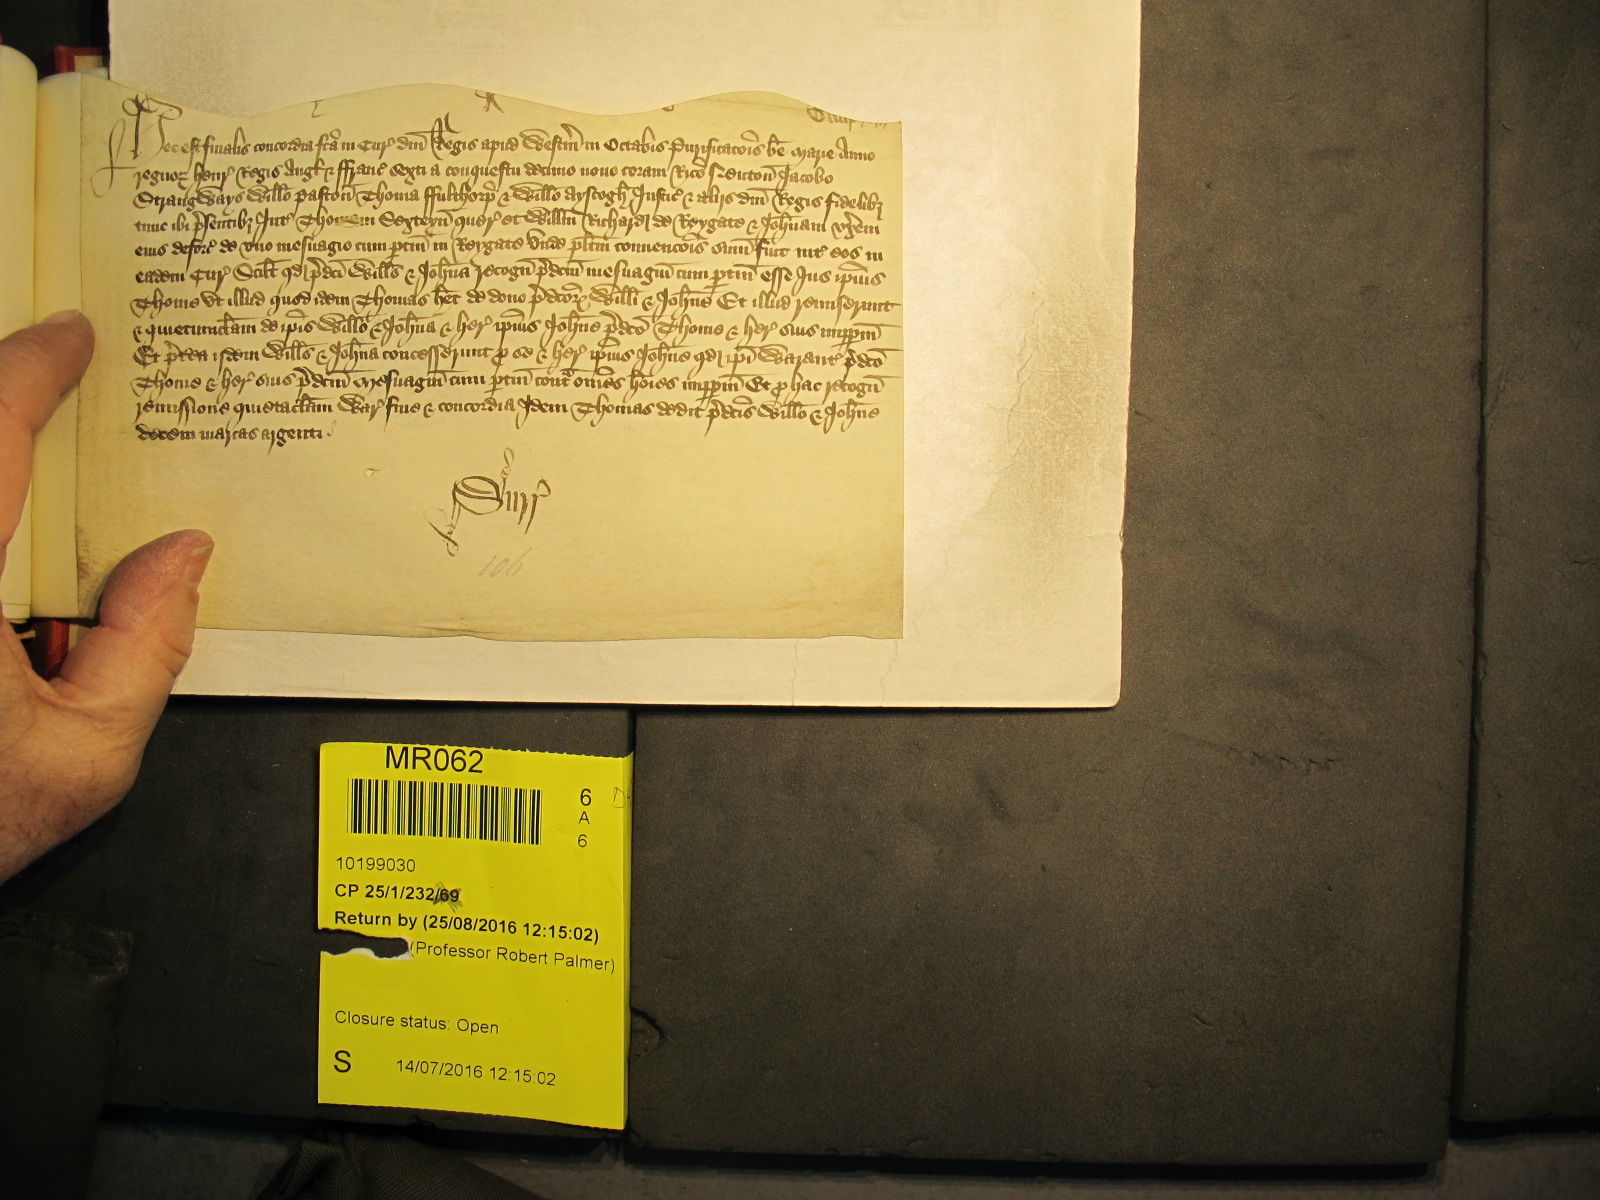 Hec est finalis concordia fca in Cur dni Regis apud Westm in Octabis Purificacois be Marie Anno
regnor Henr Regis Angl & ffranc Sexti a conquestu decimo nono coram Rico Neuton Jacobo
Strangways Willo Paston Thoma ffulthorp & Willo Ayscogh Justic & alijs dni Regis fidelibz
tunc ibi presentibz Int Thomam Sexteyn quer et Willm Richard de Reygate & Johnam vxem
eius deforc de vno mesuagio cum ptin in Reygate Unde plitm convencois sum fuit int eos in
eadem Cur Scilt qd pdci Wills & Johna recogn pdcm mesuagiu cum ptin esse Jus ipius
Thome vt illud quod idem Thomas het de dono pdcor Willi & Johne Et illud remiserunt
& quietumclam de ipis Willo & Johna & her ipius Johne pdco Thome & her suis imppm
Et pterea ijdem Wills & Johna concesserunt p se & her ipius Johne qd ipi Warant pdco
Thome & her suis pdcm Mesuagiu cum ptin cont omes hoies imppm Et p hac recogn
remissione quietaclam War fine & concordia Idem Thomas dedit pdcis Willo & Johne
decem marcas argenti
Surr
106
MR062
6
A
6
10199030
CP 25/1/232/69
Return by (25/08/2016 12:15:02)
(Professor Robert Palmer)
Closure status: Open
S 14/07/2016 12:15:02